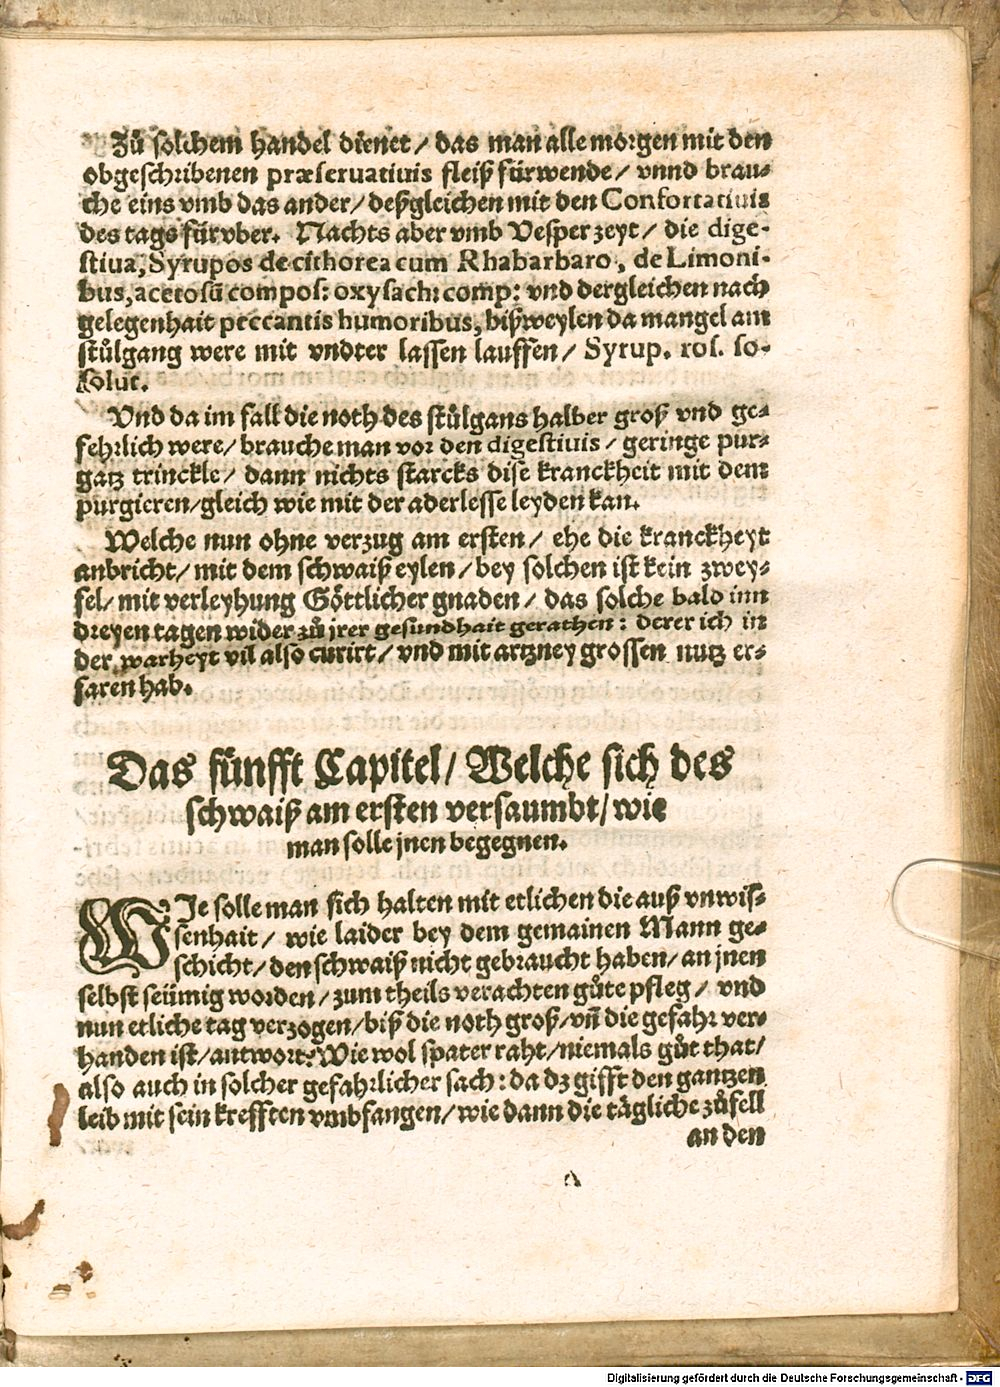 Zů solchem handel dienet / das man alle morgen mit den
obgeschribenen præseruatiuis fleiß fürwende / vnnd brau-
che eins vmb das ander / deßgleichen mit den Confortatiuis
des tags für vber. Nachts aber vmb Vesper zeyt / die dige-
stiua, Syrupos de cichorea cum Rhabarbaro, de Limoni-
bus, acetosū compos: oxysach: comp: vnd dergleichen nach
gelegenhait peccantis humoribus, bißweylen da mangel am
stůlgang were mit vndter lassen lauffen / Syrup. ros. so-
solut.
Vnd da im fall die noth des stůlgans halber groß vnd ge-
fehrlich were / brauche man vor den digestiuis / geringe pur-
gatz trinckle / dann nichts starcks dise kranckheit mit dem
purgieren / gleich wie mit der aderlesse leyden kan.
Welche nun ohne verzug am ersten / ehe die kranckheyt
anbricht / mit dem schwaiß eylen / bey solchen ist kein zwey-
fel / mit verleyhung Göttlicher gnaden / das solche bald inn
dreyen tagen wider zů jrer gesundhait gerathen: derer ich in
der warheyt vil also curirt / vnd mit artzney grossen nutz er-
faren hab.
Das fünfft Capitel / Welche sich des
schwaiß am ersten versaumbt / wie
man solle jnen begegnen.
WJe solle man sich halten mit etlichen die auß vnwis-
senhait / wie laider bey dem gemainen Mann ge-
schicht / den schwaiß nicht gebraucht haben / an jnen
selbst seümig worden / zum theils verachten gůte pfleg / vnd
nun etliche tag verzogen / biß die noth groß / vñ die gefahr ver-
handen ist / antwort: Wie wol spater raht / niemals gůt that /
also auch in solcher gefahrlicher sach: da dz gifft den gantzen
leib mit sein krefften vmbfangen / wie dann die tägliche zůfell
an den
Digitalisierung gefördert durch die Deutsche Forschungsgemeinschaft - DFG